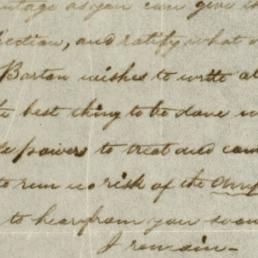 as you can give it
and ratify what
Barton wishes to write
best thing to be done
powers to treat and
to run no risk of the
to hear from you soon
I remain -